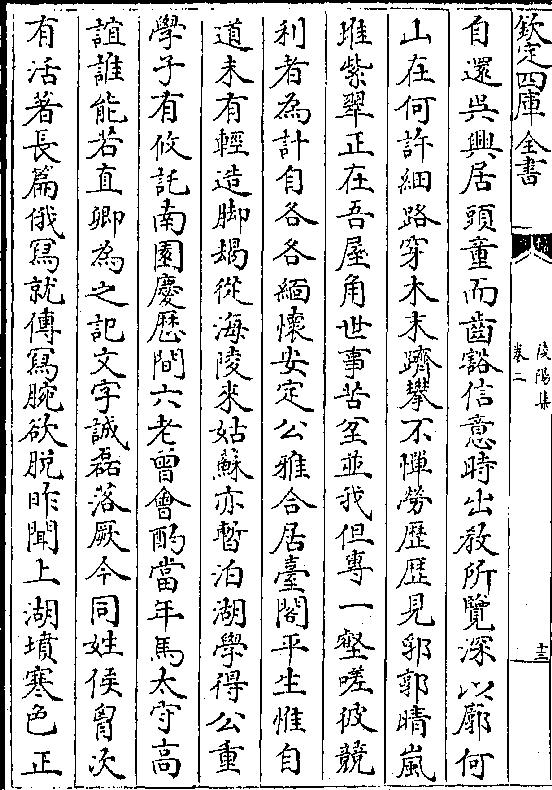 欽定四庫全書
陵陽集
卷二
十三
自還吳興居頭童而齒豁信意時出敎所覽深以廓何
山在何許細路穿木末躋攀不憚勞歷歷見郛郭晴嵐
堆紫翠正在吾屋角世事苦坌並我但專一壑嗟彼競
利者為計自各各緬懷安定公雅合居臺閣平生惟自
道未有輕造脚朅從海陵來姑蘇亦暫泊湖學得公重
學子有攸託南園慶歷間六老曾會酌當年馬太守高
誼誰能若直卿為之記文字誠磊落厥今同姓侯胷次
有活著長篇俄寫就傳寫腕欲脱昨聞上湖墳寒色正